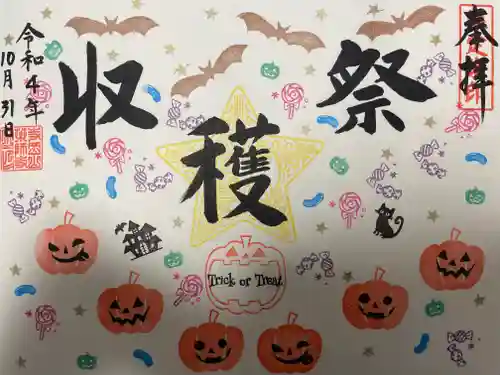 奉拝
収穫祭
令和4年
10月31日
Trick or Treat